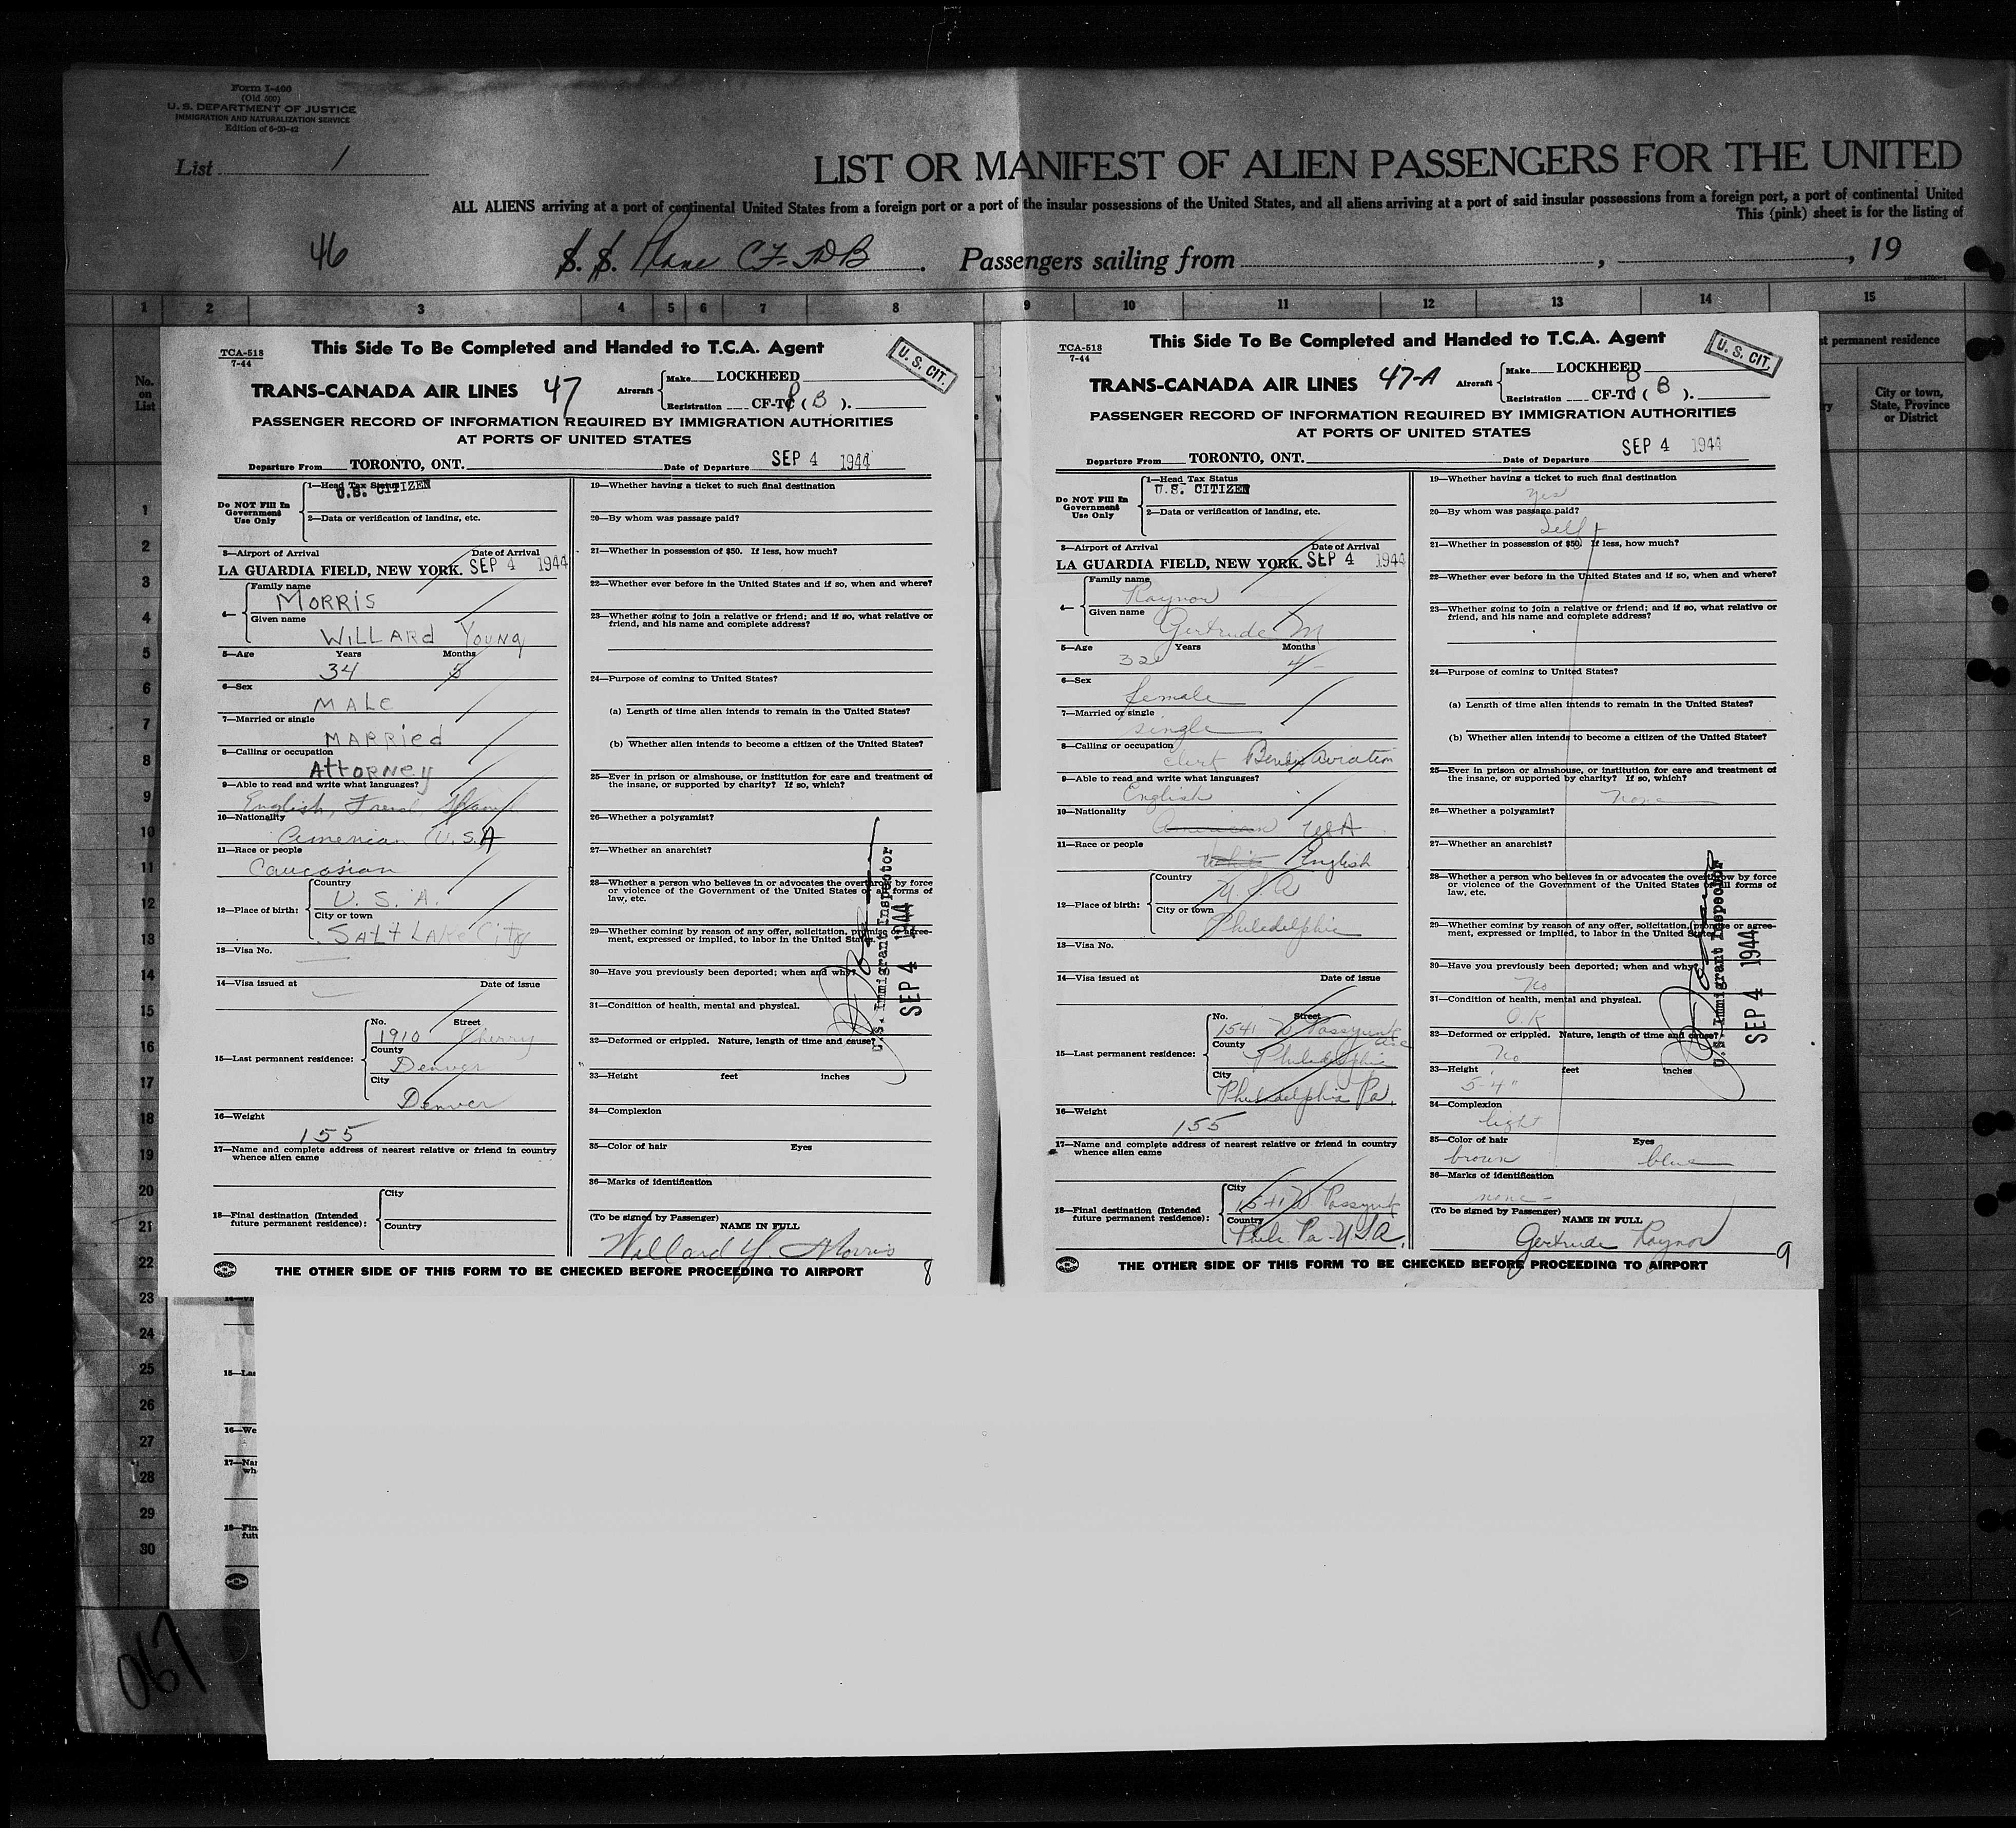 Form I-400
(Old 500)
U. S. DEPARTMENT OF JUSTICE
IMMIGRATION AND NATURALIZATION SERVICE
Edition of 6-20-42
List 1
LIST OR MANIFEST OF ALIEN PASSENGERS FOR THE UNITED
ALL ALIENS arriving at a port of continental United States from a foreign port or a port of the insular possessions of the United States, and all aliens arriving at a port of said insular possessions from a foreign port, a port of continental United
This (pink) sheet is for the listing of
46 S. S. Plane CF-TDB . Passengers sailing from , , 19
1 2 3 4 5 6 7 8 9 10 11 12 13 14 15
No.
on
List
st permanent residence
City or town,
State, Province
or District
This Side To Be Completed and Handed to T.C.A. Agent
U. S. CIT.
TCA-518
7-44
TRANS-CANADA AIR LINES 47
Aircraft Make LOCKHEED
Registration CF-TC ( B ).
PASSENGER RECORD OF INFORMATION REQUIRED BY IMMIGRATION AUTHORITIES
AT PORTS OF UNITED STATES
Departure From TORONTO, ONT. Date of Departure SEP 4 1944
Do NOT Fill In
Government
Use Only
1—Head Tax Status
U.S. CITIZEN
2—Data or verification of landing, etc.
3—Airport of Arrival Date of Arrival
LA GUARDIA FIELD, NEW YORK. SEP 4 1944
4— Family name
MORRIS
Given name
WILLARD YOUNG
5—Age Years Months
34 5
6—Sex
MALE
7—Married or single
MARRIED
8—Calling or occupation
ATTORNEY
9—Able to read and write what languages?
English, French,
10—Nationality
American U.S.A
11—Race or people
Caucasian
12—Place of birth: Country
U. S. A.
City or town
SALT LAKE City
13—Visa No.
14—Visa issued at Date of issue
15—Last permanent residence:
No. Street
1910 Cherry
County
Denver
City
Denver
16—Weight
155
17—Name and complete address of nearest relative or friend in country
whence alien came
18—Final destination (Intended
future permanent residence):
City
Country
19—Whether having a ticket to such final destination
20—By whom was passage paid?
21—Whether in possession of $50. If less, how much?
22—Whether ever before in the United States and if so, when and where?
23—Whether going to join a relative or friend; and if so, what relative or
friend, and his name and complete address?
24—Purpose of coming to United States?
(a) Length of time alien intends to remain in the United States?
(b) Whether alien intends to become a citizen of the United States?
25—Ever in prison or almshouse, or institution for care and treatment of
the insane, or supported by charity? If so, which?
26—Whether a polygamist?
27—Whether an anarchist?
28—Whether a person who believes in or advocates the overthrow by force
or violence of the Government of the United States or all forms of
law, etc.
29—Whether coming by reason of any offer, solicitation, promise or agree-
ment, expressed or implied, to labor in the United States
30—Have you previously been deported; when and why?
31—Condition of health, mental and physical.
32—Deformed or crippled. Nature, length of time and cause?
33—Height feet inches
34—Complexion
35—Color of hair Eyes
36—Marks of identification
(To be signed by Passenger)
NAME IN FULL
Willard Y. Morris
U.S. Immigrant Inspector
SEP 4 1944
THE OTHER SIDE OF THIS FORM TO BE CHECKED BEFORE PROCEEDING TO AIRPORT 8
This Side To Be Completed and Handed to T.C.A. Agent
U. S. CIT.
TCA-518
7-44
TRANS-CANADA AIR LINES 47-A
Aircraft Make LOCKHEED
Registration CF-TC ( B ).
PASSENGER RECORD OF INFORMATION REQUIRED BY IMMIGRATION AUTHORITIES
AT PORTS OF UNITED STATES
Departure From TORONTO, ONT. Date of Departure SEP 4 1944
Do NOT Fill In
Government
Use Only
1—Head Tax Status
U.S. CITIZEN
2—Data or verification of landing, etc.
3—Airport of Arrival Date of Arrival
LA GUARDIA FIELD, NEW YORK. SEP 4 1944
4— Family name
Raynor
Given name
Gertrude M
5—Age Years Months
32 4
6—Sex
female
7—Married or single
single
8—Calling or occupation
clerk Bendix Aviation
9—Able to read and write what languages?
English
10—Nationality
American USA
11—Race or people
White English
12—Place of birth: Country
U S A
City or town
Philadelphia
13—Visa No.
14—Visa issued at Date of issue
15—Last permanent residence:
No. Street
1541 W Passyunk ave
County
Philadelphia
City
Philadelphia Pa.
16—Weight
155
17—Name and complete address of nearest relative or friend in country
whence alien came
18—Final destination (Intended
future permanent residence):
City
1541 W Passyunk
Country
Phila Pa - U S A.
19—Whether having a ticket to such final destination
yes
20—By whom was passage paid?
Self
21—Whether in possession of $50. If less, how much?
22—Whether ever before in the United States and if so, when and where?
23—Whether going to join a relative or friend; and if so, what relative or
friend, and his name and complete address?
24—Purpose of coming to United States?
(a) Length of time alien intends to remain in the United States?
(b) Whether alien intends to become a citizen of the United States?
25—Ever in prison or almshouse, or institution for care and treatment of
the insane, or supported by charity? If so, which?
none
26—Whether a polygamist?
27—Whether an anarchist?
28—Whether a person who believes in or advocates the overthrow by force
or violence of the Government of the United States or all forms of
law, etc.
29—Whether coming by reason of any offer, solicitation, promise or agree-
ment, expressed or implied, to labor in the United States
30—Have you previously been deported; when and why?
No
31—Condition of health, mental and physical.
O.K
32—Deformed or crippled. Nature, length of time and cause?
No
33—Height feet inches
5-4"
34—Complexion
light
35—Color of hair Eyes
brown blue
36—Marks of identification
none -
(To be signed by Passenger)
NAME IN FULL
Gertrude Raynor
U.S. Immigrant Inspector
SEP 4 1944
THE OTHER SIDE OF THIS FORM TO BE CHECKED BEFORE PROCEEDING TO AIRPORT 9
1
2
3
4
5
6
7
8
9
10
11
12
13
14
15
16
17
18
19
20
21
22
23
24
25
26
27
28
29
30
15—Las
16—We
17—Nar
wh
18—Fin
futu
067